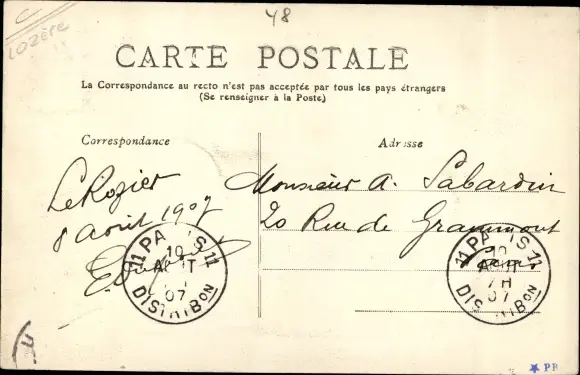 48
Lozère
CARTE POSTALE
La Correspondance au recto n'est pas acceptée par tous les pays étrangers
(Se renseigner à la Poste)
Correspondance
Adresse
Le Rozier
8 Août 1907
Monsieur A. Sabardin
20 Rue de Grammont
Paris
PARIS 11
10
AOUT
07
DISTRIBON
PARIS 11
10
AOUT
7H
07
DISTRIBON
PB